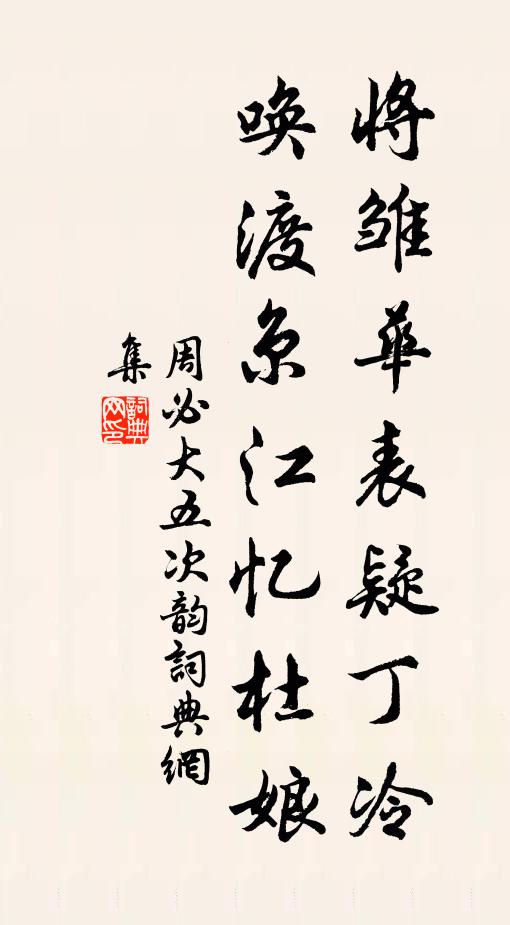 将雏华表疑丁冷
唤渡京江忆杜娘
周必大五次韵詞典網
集
詞典网印